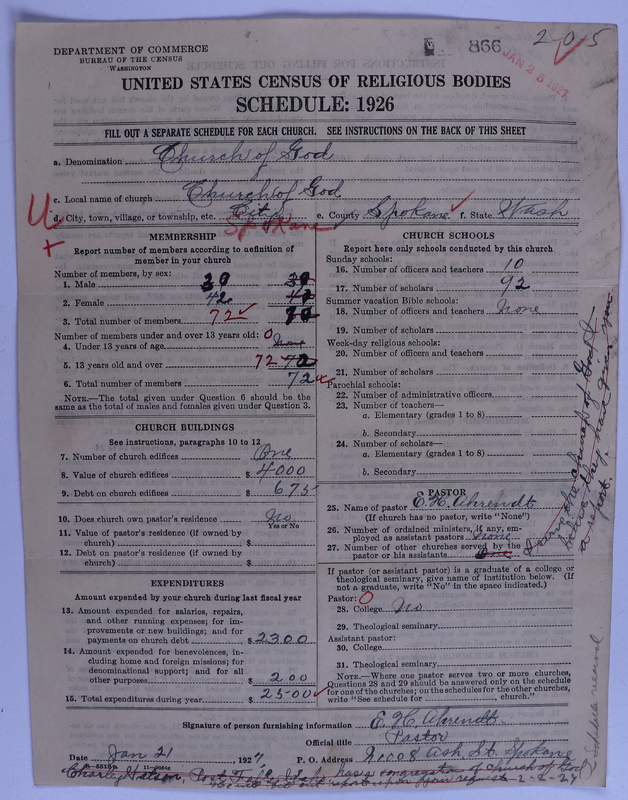 DEPARTMENT OF COMMERCE
BUREAU OF THE CENSUS
WASHINGTON
866
JAN 25 1927
2-0-5
UNITED STATES CENSUS OF RELIGIOUS BODIES
SCHEDULE: 1926
FILL OUT A SEPARATE SCHEDULE FOR EACH CHURCH. SEE INSTRUCTIONS ON THE BACK OF THIS SHEET
a. Denomination Church of God
c. Local name of church Church of God
d. City, town, village, or township, etc. City e. County Spokane f. State Wash
Spokane
MEMBERSHIP
Report number of members according to definition of
member in your church
Number of members, by sex:
1. Male 30
2. Female 42
3. Total number of members 72
Number of members under and over 13 years old:
4. Under 13 years of age 0 None
5. 13 years old and over 72
6. Total number of members 72
NOTE.—The total given under Question 6 should be the
same as the total of males and females given under Question 3.
CHURCH BUILDINGS
See instructions, paragraphs 10 to 12
7. Number of church edifices One
8. Value of church edifices $ 4000
9. Debt on church edifices $ 675
10. Does church own pastor's residence No
Yes or No
11. Value of pastor's residence (if owned by
church) $
12. Debt on pastor's residence (if owned by
church) $
EXPENDITURES
Amount expended by your church during last fiscal year
13. Amount expended for salaries, repairs,
and other running expenses; for im-
provements or new buildings; and for
payments on church debt $ 2300
14. Amount expended for benevolences, in-
cluding home and foreign missions; for
denominational support; and for all
other purposes $ 200
15. Total expenditures during year $ 2500
CHURCH SCHOOLS
Report here only schools conducted by this church
Sunday schools:
16. Number of officers and teachers 10
17. Number of scholars 92
Summer vacation Bible schools:
18. Number of officers and teachers None
19. Number of scholars
Week-day religious schools:
20. Number of officers and teachers
21. Number of scholars
Parochial schools:
22. Number of administrative officers
23. Number of teachers—
a. Elementary (grades 1 to 8)
b. Secondary
24. Number of scholars—
a. Elementary (grades 1 to 8)
b. Secondary
PASTOR
25. Name of pastor E. H. Ahrendt
(If church has no pastor, write "None")
26. Number of ordained ministers, if any, em-
ployed as assistant pastors None
27. Number of other churches served by the
pastor or his assistants
If pastor (or assistant pastor) is a graduate of a college or
theological seminary, give name of institution below. (If
not a graduate, write "No" in the space indicated.)
Pastor: 0
28. College No
29. Theological seminary
Assistant pastor:
30. College
31. Theological seminary
NOTE.—Where one pastor serves two or more churches,
Questions 28 and 29 should be answered only on the schedule
for one of the churches; on the schedules for the other churches,
write "See schedule for church."
Signature of person furnishing information E. H. Ahrendt
Official title Pastor
Date Jan 21, 1927. P. O. Address 21008 Ash St. Spokane
the church of God
have they had given you
a report.